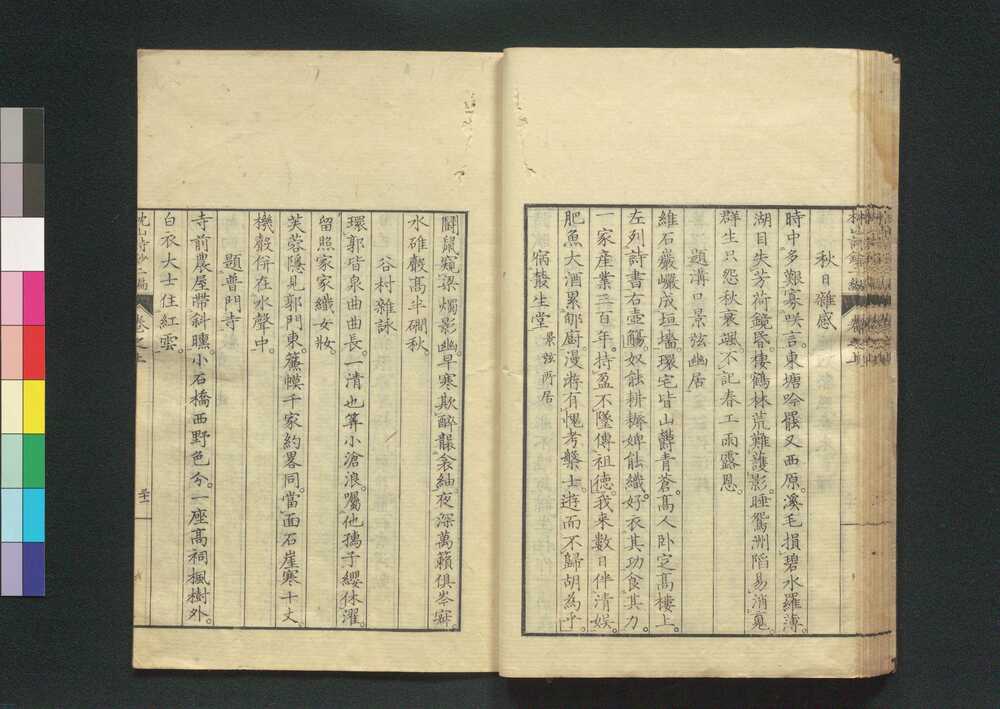 秋日雜感
時中多艱寡咲言。東塘吟罷又西原。溪毛損碧水羅薄。
湖目失芳荷鏡昏。棲鶴林荒難護影。睡鴛洲陷易消寃。
群生只怨秋衰颯。不記春工雨露恩。
題溝口景弦幽居
維石巖巖成垣墻。環宅皆山欝青蒼。高人卧定高樓上。
左列詩書右壺觴。奴蝕耕耨婢蝕織。好衣其功食其力。
一家產業三百年。持盈不墜傳祖德。我來數日伴清娛。
肥魚大酒累郇廚。漫將有愧考槃士。遊而不歸胡為乎。
宿叢生堂 景弦所居
鬪鼠窺梁燭影幽。早寒欺醉襲衾紬。夜深萬籟俱岑寂。
水碓嚴高半磵秋。
谷村雜詠
環郭皆泉曲曲長。一清也筭小滄浪。囑他孺子纓休濯。
留照家家織女妝。
芙蓉隱見郭門東。簾幙千家約畧同。當面石崖寒十丈。
機聲併在水聲中。
題普門寺
寺前農屋帶斜曛。小石橋西野色分。一座高祠楓樹外。
白衣大士住紅雲。
枕山詩鈔二編 卷之上 三十一